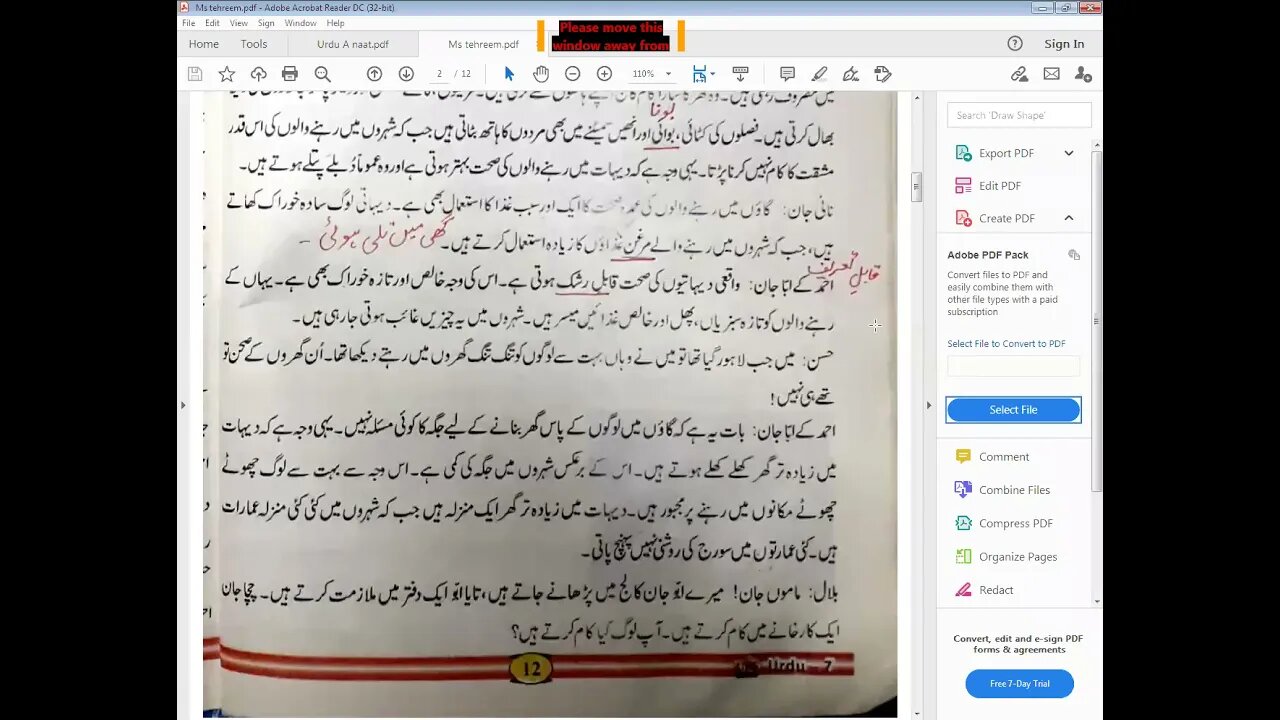 Ms tehreem.pdf - Adobe Acrobat Reader DC (32-bit)
File Edit View Sign Window Help
Please move this
window away from
Home Tools Urdu A level.pdf Ms tehreem.pdf Sign In
2 / 12 110%
بونا
بھال کرتی ہیں۔ فصلوں کی کٹائی، بوائی اور انھیں سمیٹنے میں بھی مردوں کا ہاتھ بٹاتی ہیں جب کہ شہروں میں رہنے والوں کی اس قدر
مشقت کا کام نہیں کرنا پڑتا۔ یہی وجہ ہے کہ دیہات میں رہنے والوں کی صحت بہتر ہوتی ہے اور وہ عموماً دُبلے پتلے ہوتے ہیں۔
نانی جان: گاؤں میں رہنے والوں کی عمدہ صحت کا ایک اور سبب غذا کا استعمال بھی ہے۔ دیہاتی لوگ سادہ خوراک کھاتے
گھی میں تلی ہوئی
ہیں، جب کہ شہروں میں رہنے والے مرغن غذاؤں کا زیادہ استعمال کرتے ہیں۔
قابلِ تعریف
احمد کے ابّا جان: واقعی دیہاتیوں کی صحت قابلِ رشک ہوتی ہے۔ اس کی وجہ خالص اور تازہ خوراک بھی ہے۔ یہاں کے
رہنے والوں کو تازہ سبزیاں، پھل اور خالص غذائیں میسر ہیں۔ شہروں میں یہ چیزیں غائب ہوتی جا رہی ہیں۔
حسن: میں جب لاہور گیا تھا تو میں نے وہاں بہت سے لوگوں کو تنگ تنگ گھروں میں رہتے دیکھا تھا۔ اُن گھروں کے صحن تو
تھے ہی نہیں!
احمد کے ابّا جان: بات یہ ہے کہ گاؤں میں لوگوں کے پاس گھر بنانے کے لیے جگہ کا کوئی مسئلہ نہیں۔ یہی وجہ ہے کہ دیہات
میں زیادہ تر گھر کھلے کھلے ہوتے ہیں۔ اس کے برعکس شہروں میں جگہ کی کمی ہے۔ اس وجہ سے بہت سے لوگ چھوٹے
چھوٹے مکانوں میں رہنے پر مجبور ہیں۔ دیہات میں زیادہ تر گھر ایک منزلہ ہیں جب کہ شہروں میں کئی کئی منزلہ عمارات
ہیں۔ کئی عمارتوں میں سورج کی روشنی نہیں پہنچ پاتی۔
بلال: ماموں جان! میرے ابّو جان کالج میں پڑھانے جاتے ہیں، تایا ابّو ایک دفتر میں ملازمت کرتے ہیں۔ چچا جان
ایک کارخانے میں کام کرتے ہیں۔ آپ لوگ کیا کام کرتے ہیں؟
12
Urdu – 7
Search 'Draw Shape'
Export PDF
Edit PDF
Create PDF
Adobe PDF Pack
Convert files to PDF and
easily combine them with
other file types with a paid
subscription
Select File to Convert to PDF
Select File
Comment
Combine Files
Compress PDF
Organize Pages
Redact
Convert, edit and e-sign PDF
forms & agreements
Free 7-Day Trial